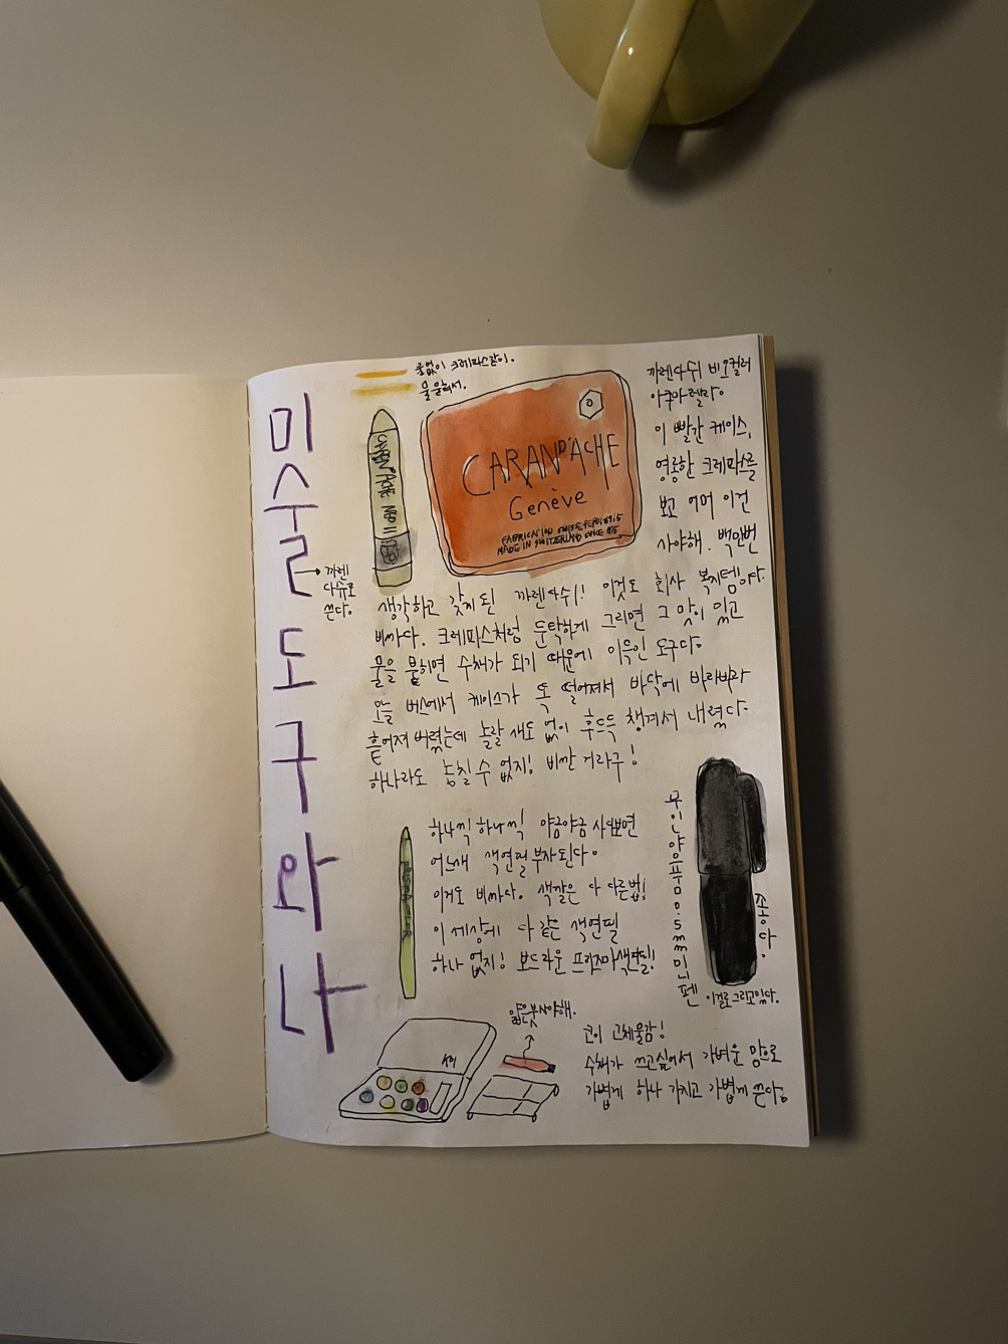 미술도구와나
물없이 크레파스같이.
물묻혀서.
CARAN D'ACHE
CARAN D'ACHE
Genève
FABRICATION SUISSE DEPUIS 1915
MADE IN SWITZERLAND SINCE 1915
까렌다쉬 비오컬러
아쿠아렐라.
이 빨간 케이스,
영롱한 크레파스를
보고 어머 이건
사야해. 백만번
까렌
다쉬로
쓴다.
생각하고 갖게 된 까렌다쉬! 이것도 회사 복지템이다.
비싸다. 크레파스처럼 둔탁하게 그리면 그 맛이 있고
물을 묻히면 수채가 되기 때문에 이득인 도구다.
오늘 버스에서 케이스가 똑 떨어져서 바닥에 바라바라
흩어져 버렸는데 놀랄 새도 없이 후드득 챙겨서 내렸다.
하나라도 놓칠 수 없지! 비싼 거라구!
하나씩 하나씩 야금야금 사보면
어느새 색연필 부자 된다.
이거도 비싸다. 색깔은 다 다른법!
이 세상에 다 같은 색연필
하나 없지! 보드라운 프리즈마색연필!
무인양품0.5mm미니펜
좋다.
이걸로 그리고 있다.
얇은붓 사야해.
KOI
코이 고체물감!
수채가 쓰고싶어서 가벼운 맘으로
가볍게 하나 가지고 가볍게 쓴다.